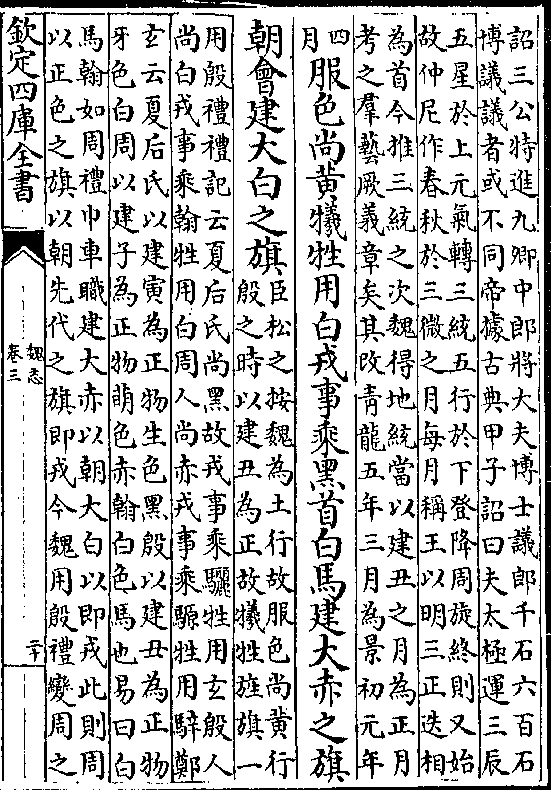 詔三公特進九卿中郎將大夫博士議郎千石六百石
博議議者或不同帝據古典甲子詔曰夫太極運三辰
五星於上元氣轉三統五行於下登降周旋終則又始
故仲尼作春秋於三微之月每月稱王以明三正迭相
為首今推三統之次魏得地統當以建丑之月為正月
考之羣藝厥義章矣其改青龍五年三月為景初元年
四
月
服色尚黄犧牲用白戎事乘黑首白馬建大赤之旗
朝會建大白之旗
臣松之按魏為土行故服色尚黄行
殷之時以建丑為正故犧牲旌旗一
用殷禮禮記云夏后氏尚黑故戎事乘驪牲用玄殷人
尚白戎事乘翰牲用白周人尚赤戎事乘騵牲用騂鄭
玄云夏后氏以建寅為正物生色黑殷以建丑為正物
牙色白周以建子為正物萌色赤翰白色馬也易曰白
馬翰如周禮巾車職建大赤以朝大白以即戎此則周
以正色之旗以朝先代之旗即戎今魏用殷禮變周之
欽定四庫全書
魏志
卷三
二十